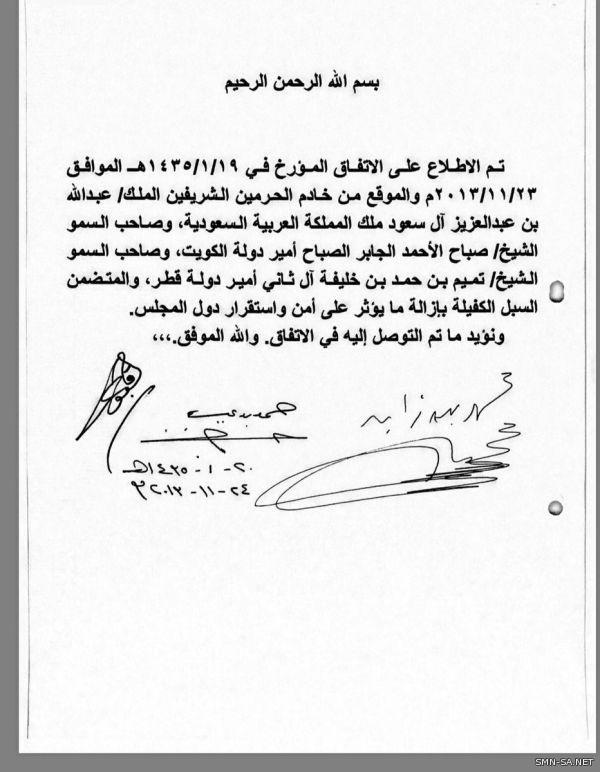 بسم الله الرحمن الرحيم
تم الاطلاع على الاتفاق المؤرخ في ١٤٣٥/١/١٩هـ الموافق
٢٠١٣/١١/٢٣م والموقع من خادم الحرمين الشريفين الملك/ عبدالله
بن عبدالعزيز آل سعود ملك المملكة العربية السعودية، وصاحب السمو
الشيخ/ صباح الأحمد الجابر الصباح أمير دولة الكويت، وصاحب السمو
الشيخ/ تميم بن حمد بن خليفة آل ثاني أمير دولة قطر، والمتضمن
السبل الكفيلة بإزالة ما يؤثر على أمن واستقرار دول المجلس.
ونؤيد ما تم التوصل إليه في الاتفاق. والله الموفق.،،،
٢٠-١-١٤٣٥هـ
٢٤-١١-٢٠١٣م
SMN-SA.NET